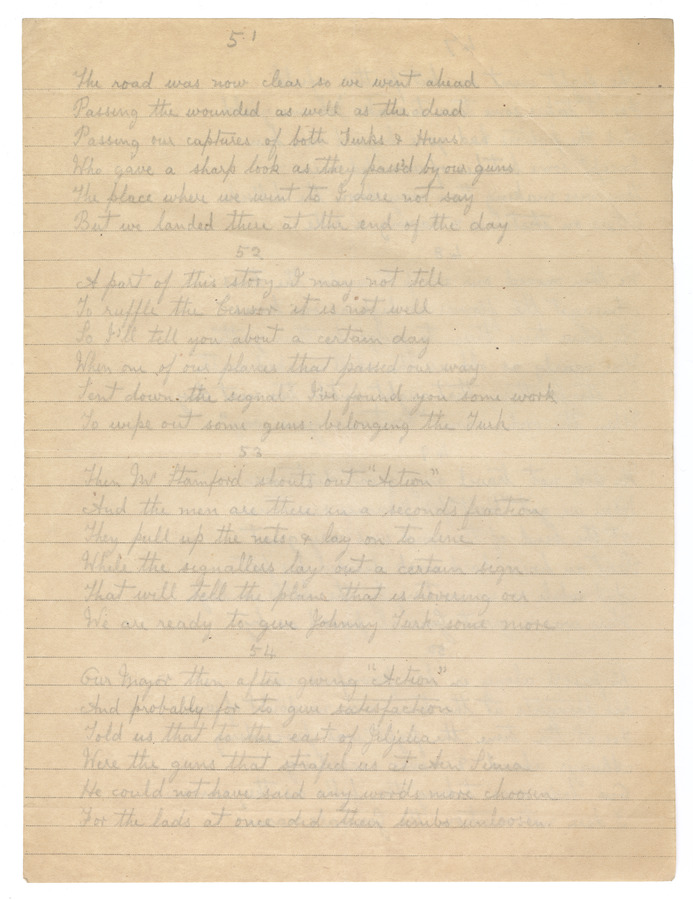 51
The road was now clear so we went ahead
Passing the wounded as well as the dead
Passing our captures of both Turks & Huns
Who gave a sharp look as they pass'd by our guns
The place where we went to I dare not say
But we landed there at the end of the day
52
A part of this story I may not tell
To ruffle the Censor it is not well
So I'll tell you about a certain day
When one of our planes that passed our way
Sent down the signal I've found you some work
To wipe out some guns belonging the Turk
53
Then Mr Stamford shouts out "Action"
And the men are there in a seconds fraction
They pull up the nets & lay on to line
While the signallers lay out a certain sign
That will tell the plane that is hovering oer
We are ready to give Johnny Turk some more
54
Our Major then after giving "Action"
And probably for to give satisfaction
Told us that to the east of Jiljilia
Were the guns that strafed us at Ain Sinia
He could not have said any words more choosen
For the lads at once did their limbs unloosen.